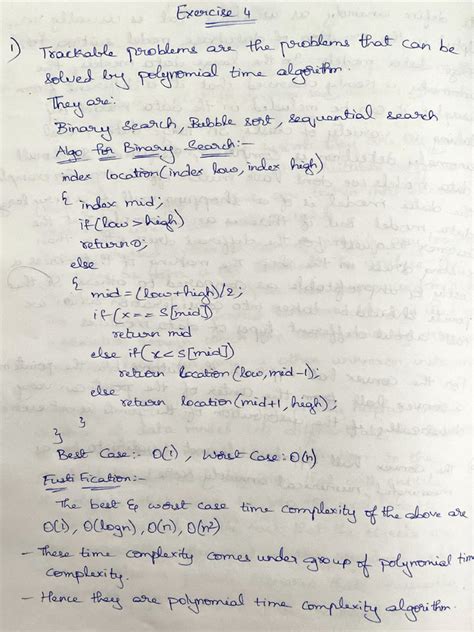 Exercise 4
1) Trackable problems are the problems that can be
solved by polynomial time algorithm.
They are:
Binary Search, Bubble sort, sequential search
Algo for Binary Search:-
index location(index low, index high)
{ index mid;
if(low > high)
return 0;
else
{
mid = (low+high)/2;
if(x == S[mid])
return mid
else if(x < S[mid])
return location(low, mid-1);
else
return location(mid+1, high);
}
}
Best Case:- O(1), Worst Case: O(n)
Justification:-
The best & worst case time complexity of the above are
O(1), O(logn), O(n), O(n²)
- These time complexity comes under group of polynomial time
complexity.
- Hence they are polynomial time complexity algorithm.